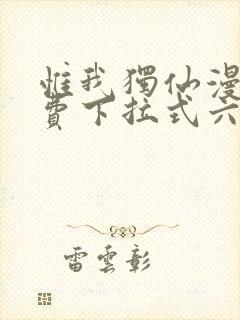 惟我獨仙漫
費下拉式六
雷雲彰